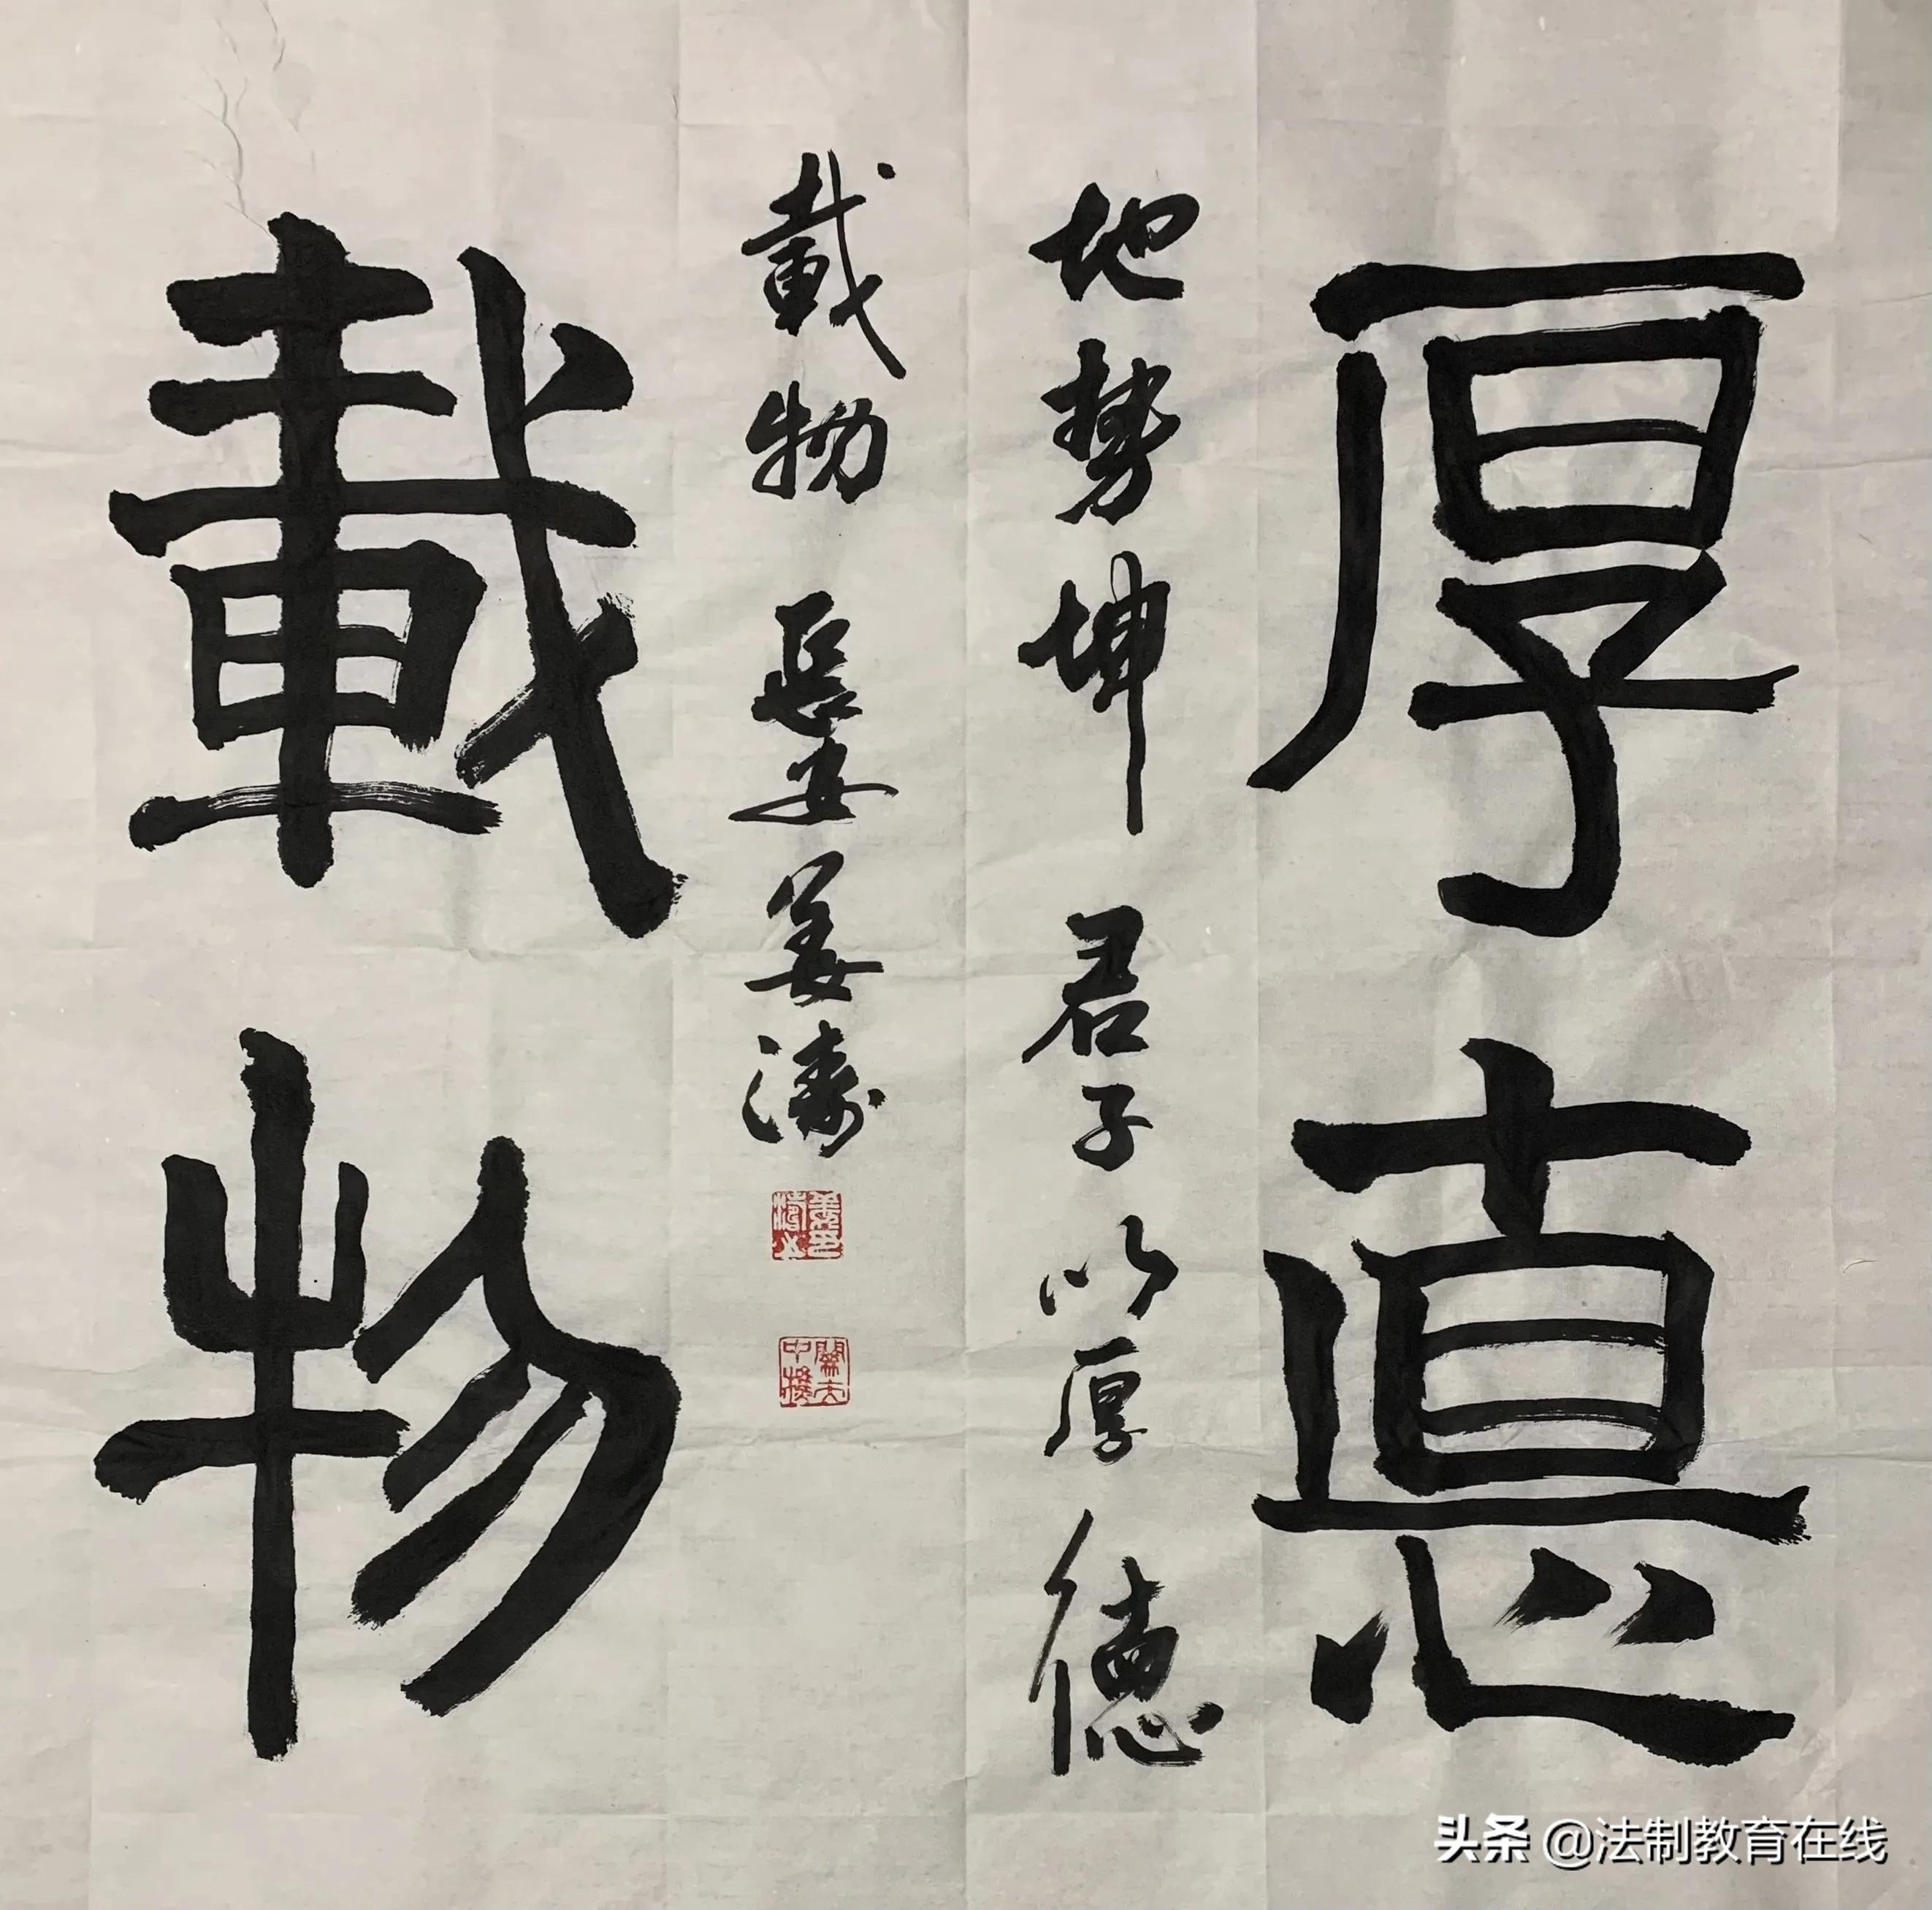 厚悳
地势坤君子以厚德
載物長安姜濤
載物
头条 @法制教育在线